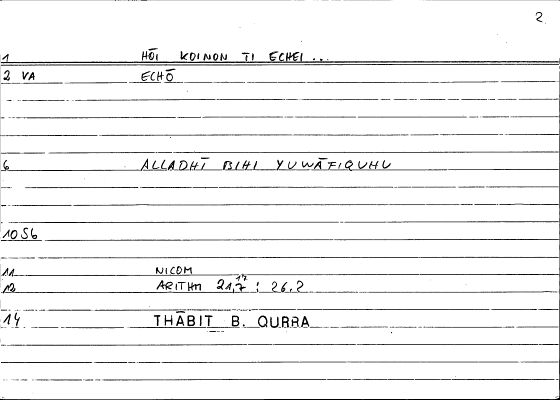 2
1 HŌI KOINON TI ECHEI ...
2 VA ECHŌ
6 ALLADHĪ BIHI YUWĀFIQUHU
10 S6
11 NICOM
12 ARITHM 21,7 17 : 26.2
14 THĀBIT B. QURRA